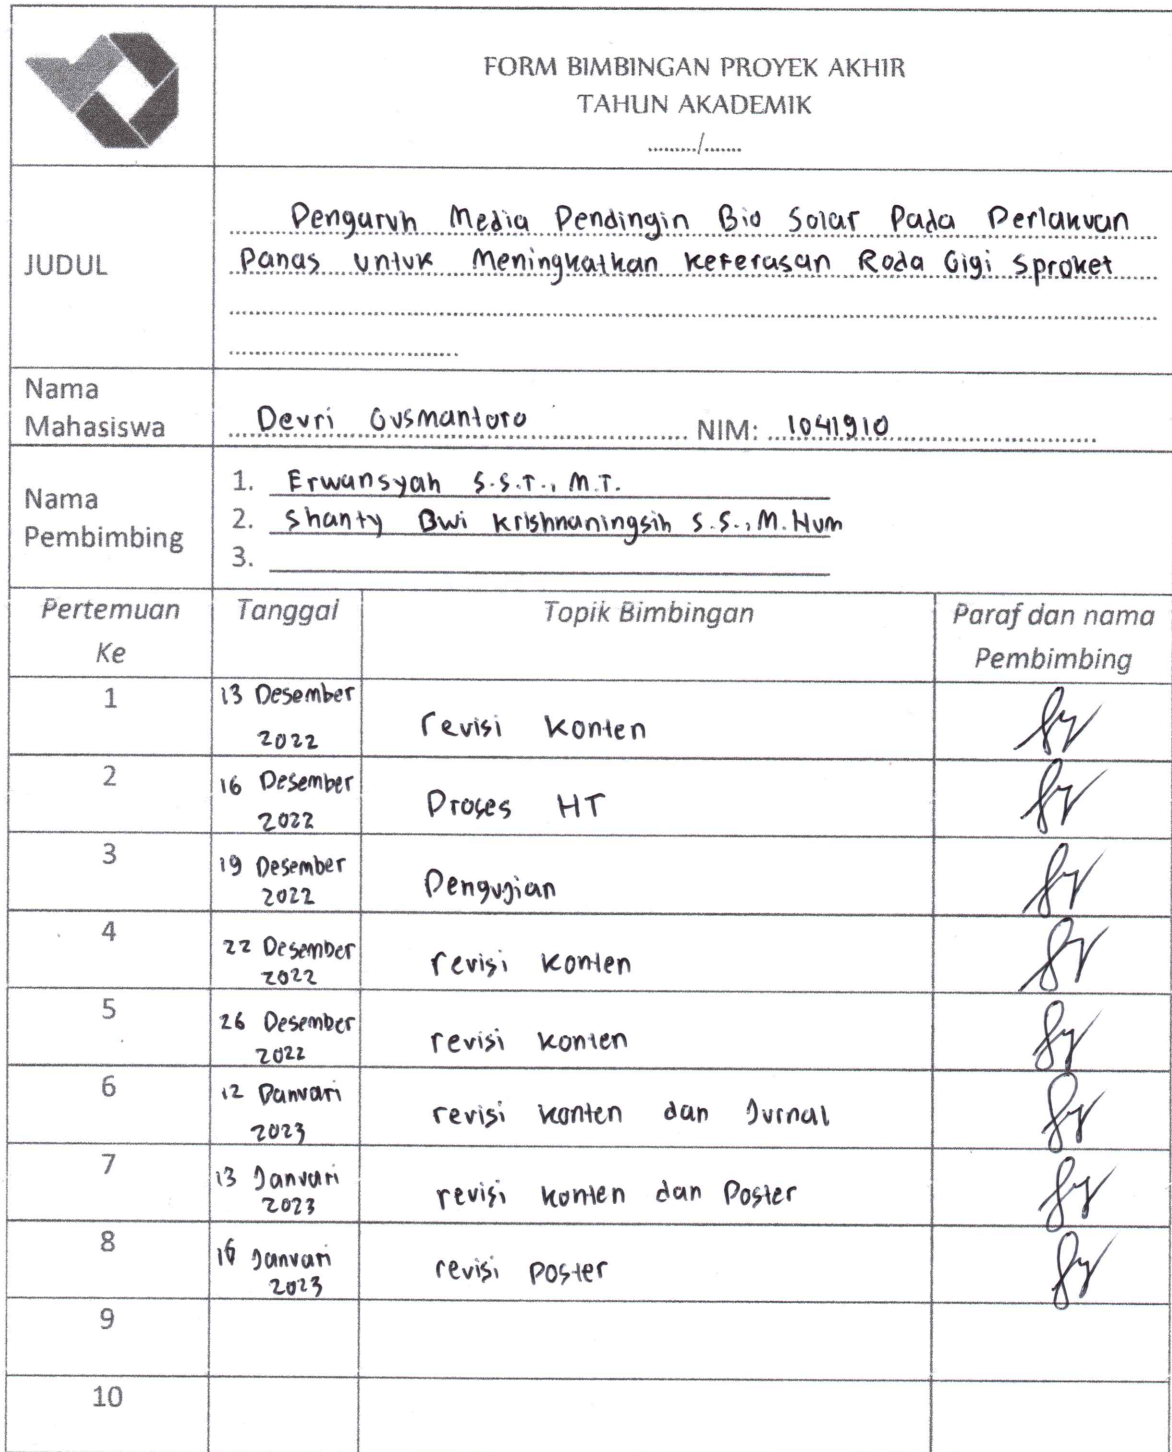 FORM BIMBINGAN PROYEK AKHIR
TAHUN AKADEMIK
........./.......
JUDUL
Pengaruh Media Pendingin Bio Solar Pada Perlakuan
Panas untuk Meningkatkan keferasan Roda Gigi Sproket
Nama
Mahasiswa
Devri Gusmantoro NIM: 1041910
Nama
Pembimbing
1. Erwansyah S.S.T., M.T.
2. Shanty Dwi Krishnaningsih S.S., M.Hum
3.
Pertemuan
Ke
Tanggal
Topik Bimbingan
Paraf dan nama
Pembimbing
1
13 Desember
2022
revisi konten
2
16 Desember
2022
Proses HT
3
19 Desember
2022
Pengujian
4
22 Desember
2022
revisi konten
5
26 Desember
2022
revisi konten
6
12 Januari
2023
revisi konten dan Jurnal
7
13 Januari
2023
revisi konten dan Poster
8
16 Januari
2023
revisi poster
9
10